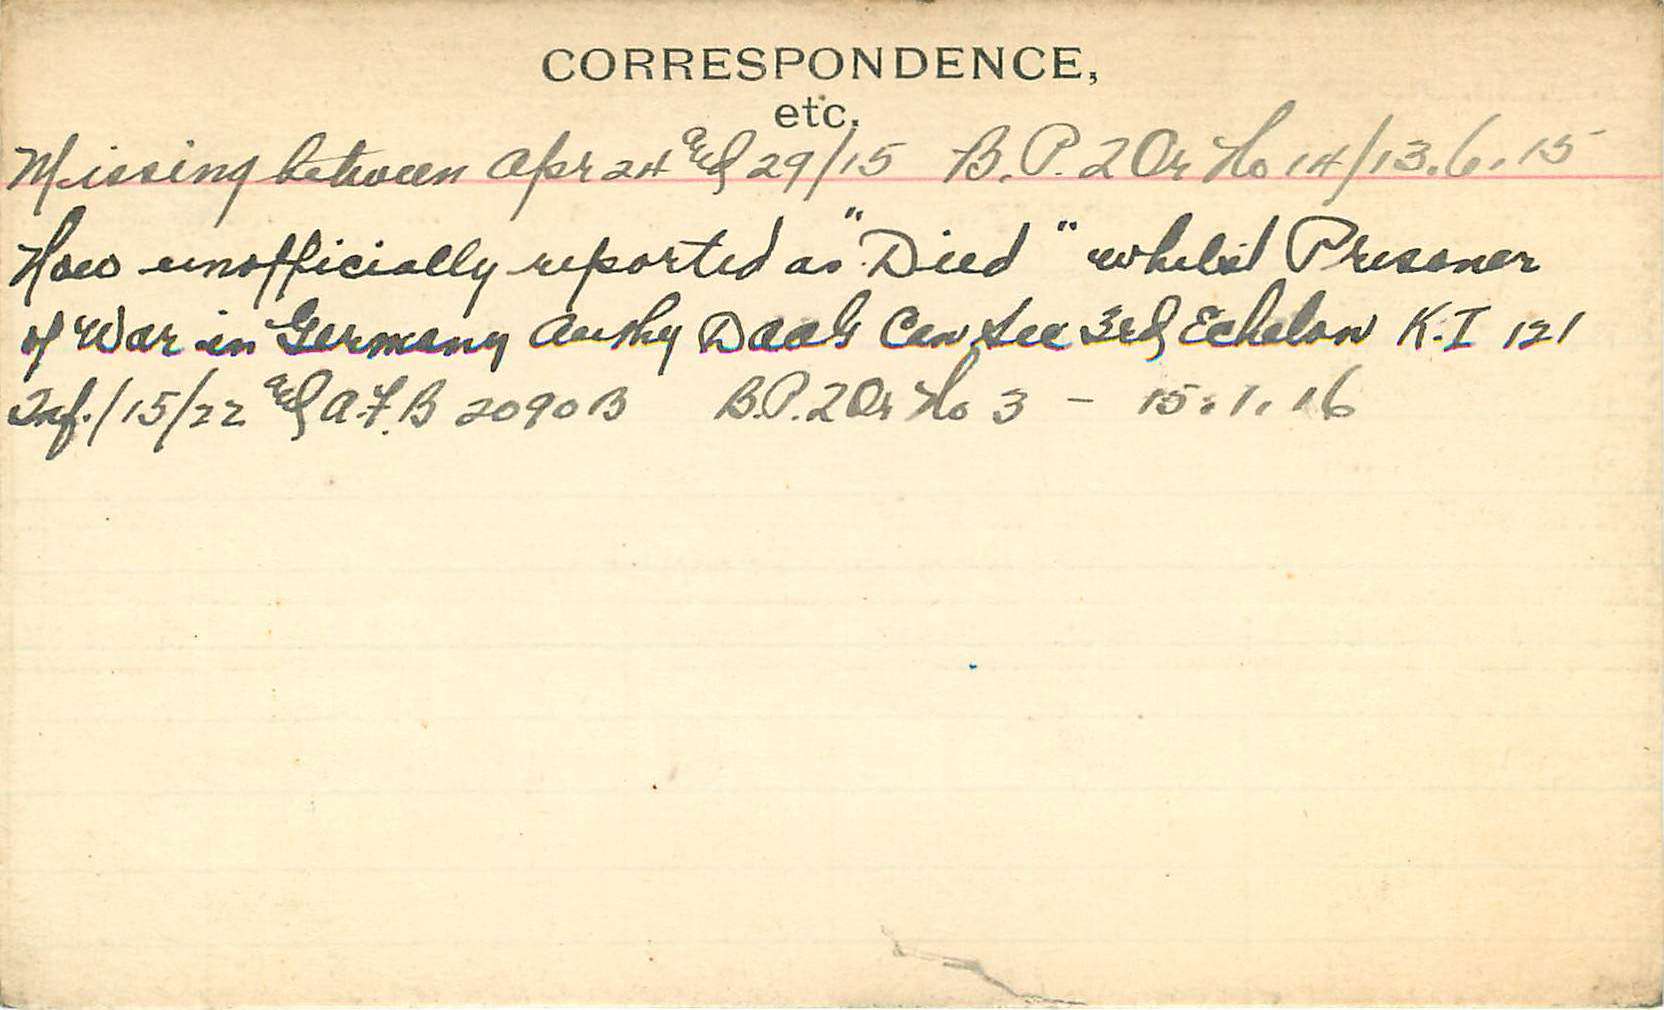 CORRESPONDENCE,
etc.
Missing between Apr 24 and 29/15 B.P. 2 Or No 14/13.6.15
Now unofficially reported as "Died" whilst Prisoner
of War in Germany Auth'y Can Sec 3rd Echelon K.I 121
Inf./15/22 and A.F.B 2090B B.P. 2 Or No 3 - 15.1.16